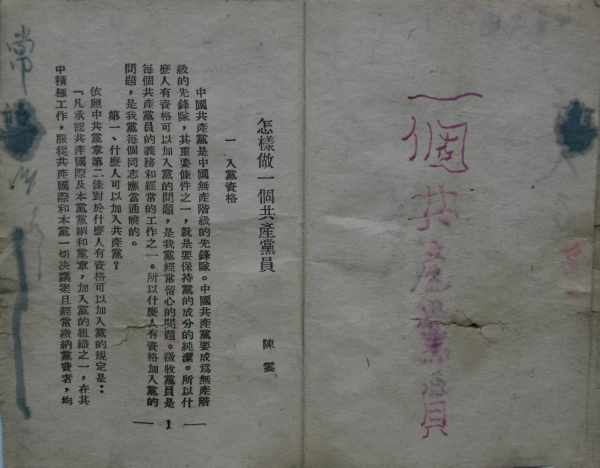 一個共產黨員
怎樣做一個共產黨員
陳雲
一 入黨資格
中國共產黨是中國無產階級的先鋒隊。中國共產黨要成爲無產階
級的先鋒隊，其重要條件之一，就是要保持黨的成分的純潔。所以什
麼人有資格可以加入黨的問題，是我黨經常留心的問題。徵收黨員是
每個共產黨員的義務和經常的工作之一。所以什麼人有資格加入黨的
問題，是我黨每個同志應當通曉的。
第一、什麼人可以加入共產黨？
依照中共黨章第二條對於什麼人有資格可以加入黨的規定是：
「凡承認共產國際及本黨黨綱和黨章，加入黨的組織之一，在其
中積極工作，服從共產國際和本黨一切決議案且經常繳納黨費者，均
— 1 —
常